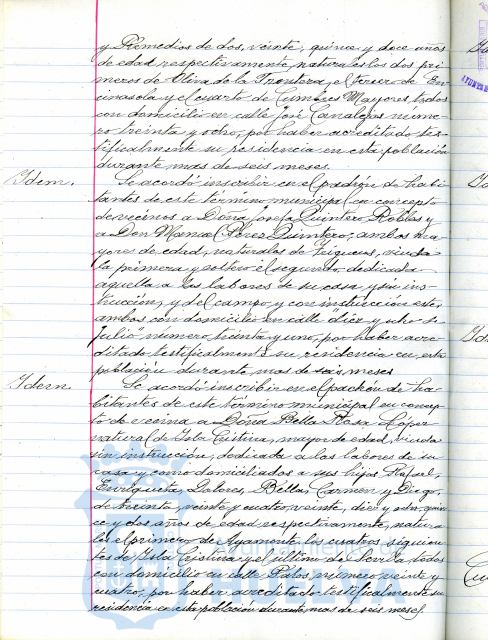 y Remedios de dos, veinte, quince y doce años
de edad respectivamente, naturales los dos pri
meros de Oliva de la Frontera, el tercero de En
cinasola y el cuarto de Cumbres Mayores todos
con domicilio en calle José Canalejas nume
ro treinta y ocho, por haber acreditado tes-
tificalmente su residencia en esta población
durante mas de seis meses.
Idem.
Se acordó inscribir en el padrón de habi
tantes de este término municipal en concepto
de vecinos a Doña Josefa Quintero Robles y
a Don Manuel Pérez Quintero, ambos ma
yores de edad, naturales de Trigueros, viuda
la primera y soltero el segundo, dedicada
aquella a las labores de su casa y sin ins-
trucción, y del campo y con instrucción este,
ambos con domicilio en calle "diez y ocho de
Julio" numero treinta y uno, por haber acre
ditado testificalmente su residencia en esta
población durante mas de seis meses
Idem.
Se acordó inscribir en el padrón de ha-
bitantes de este término municipal en concep
to de vecina a Doña Bella Rosa López
natural de Isla Cristina, mayor de edad, viuda
sin instrucción, dedicada a las labores de su
casa y como domiciliados a sus hijos Rafael,
Enriqueta, Dolores, Bella, Carmen y Diego,
de treinta, veinte y cuatro, veinte, diez y ocho, quin
ce y dos años de edad respectivamente, natura
les el primero de Ayamonte los cuatros siguien
tes de Isla Cristina y el último de Sevilla, todos
con domicilio en calle Palos, número veinte y
cuatro, por haber acreditado testificalmente su
residencia en esta población durante mas de seis meses.